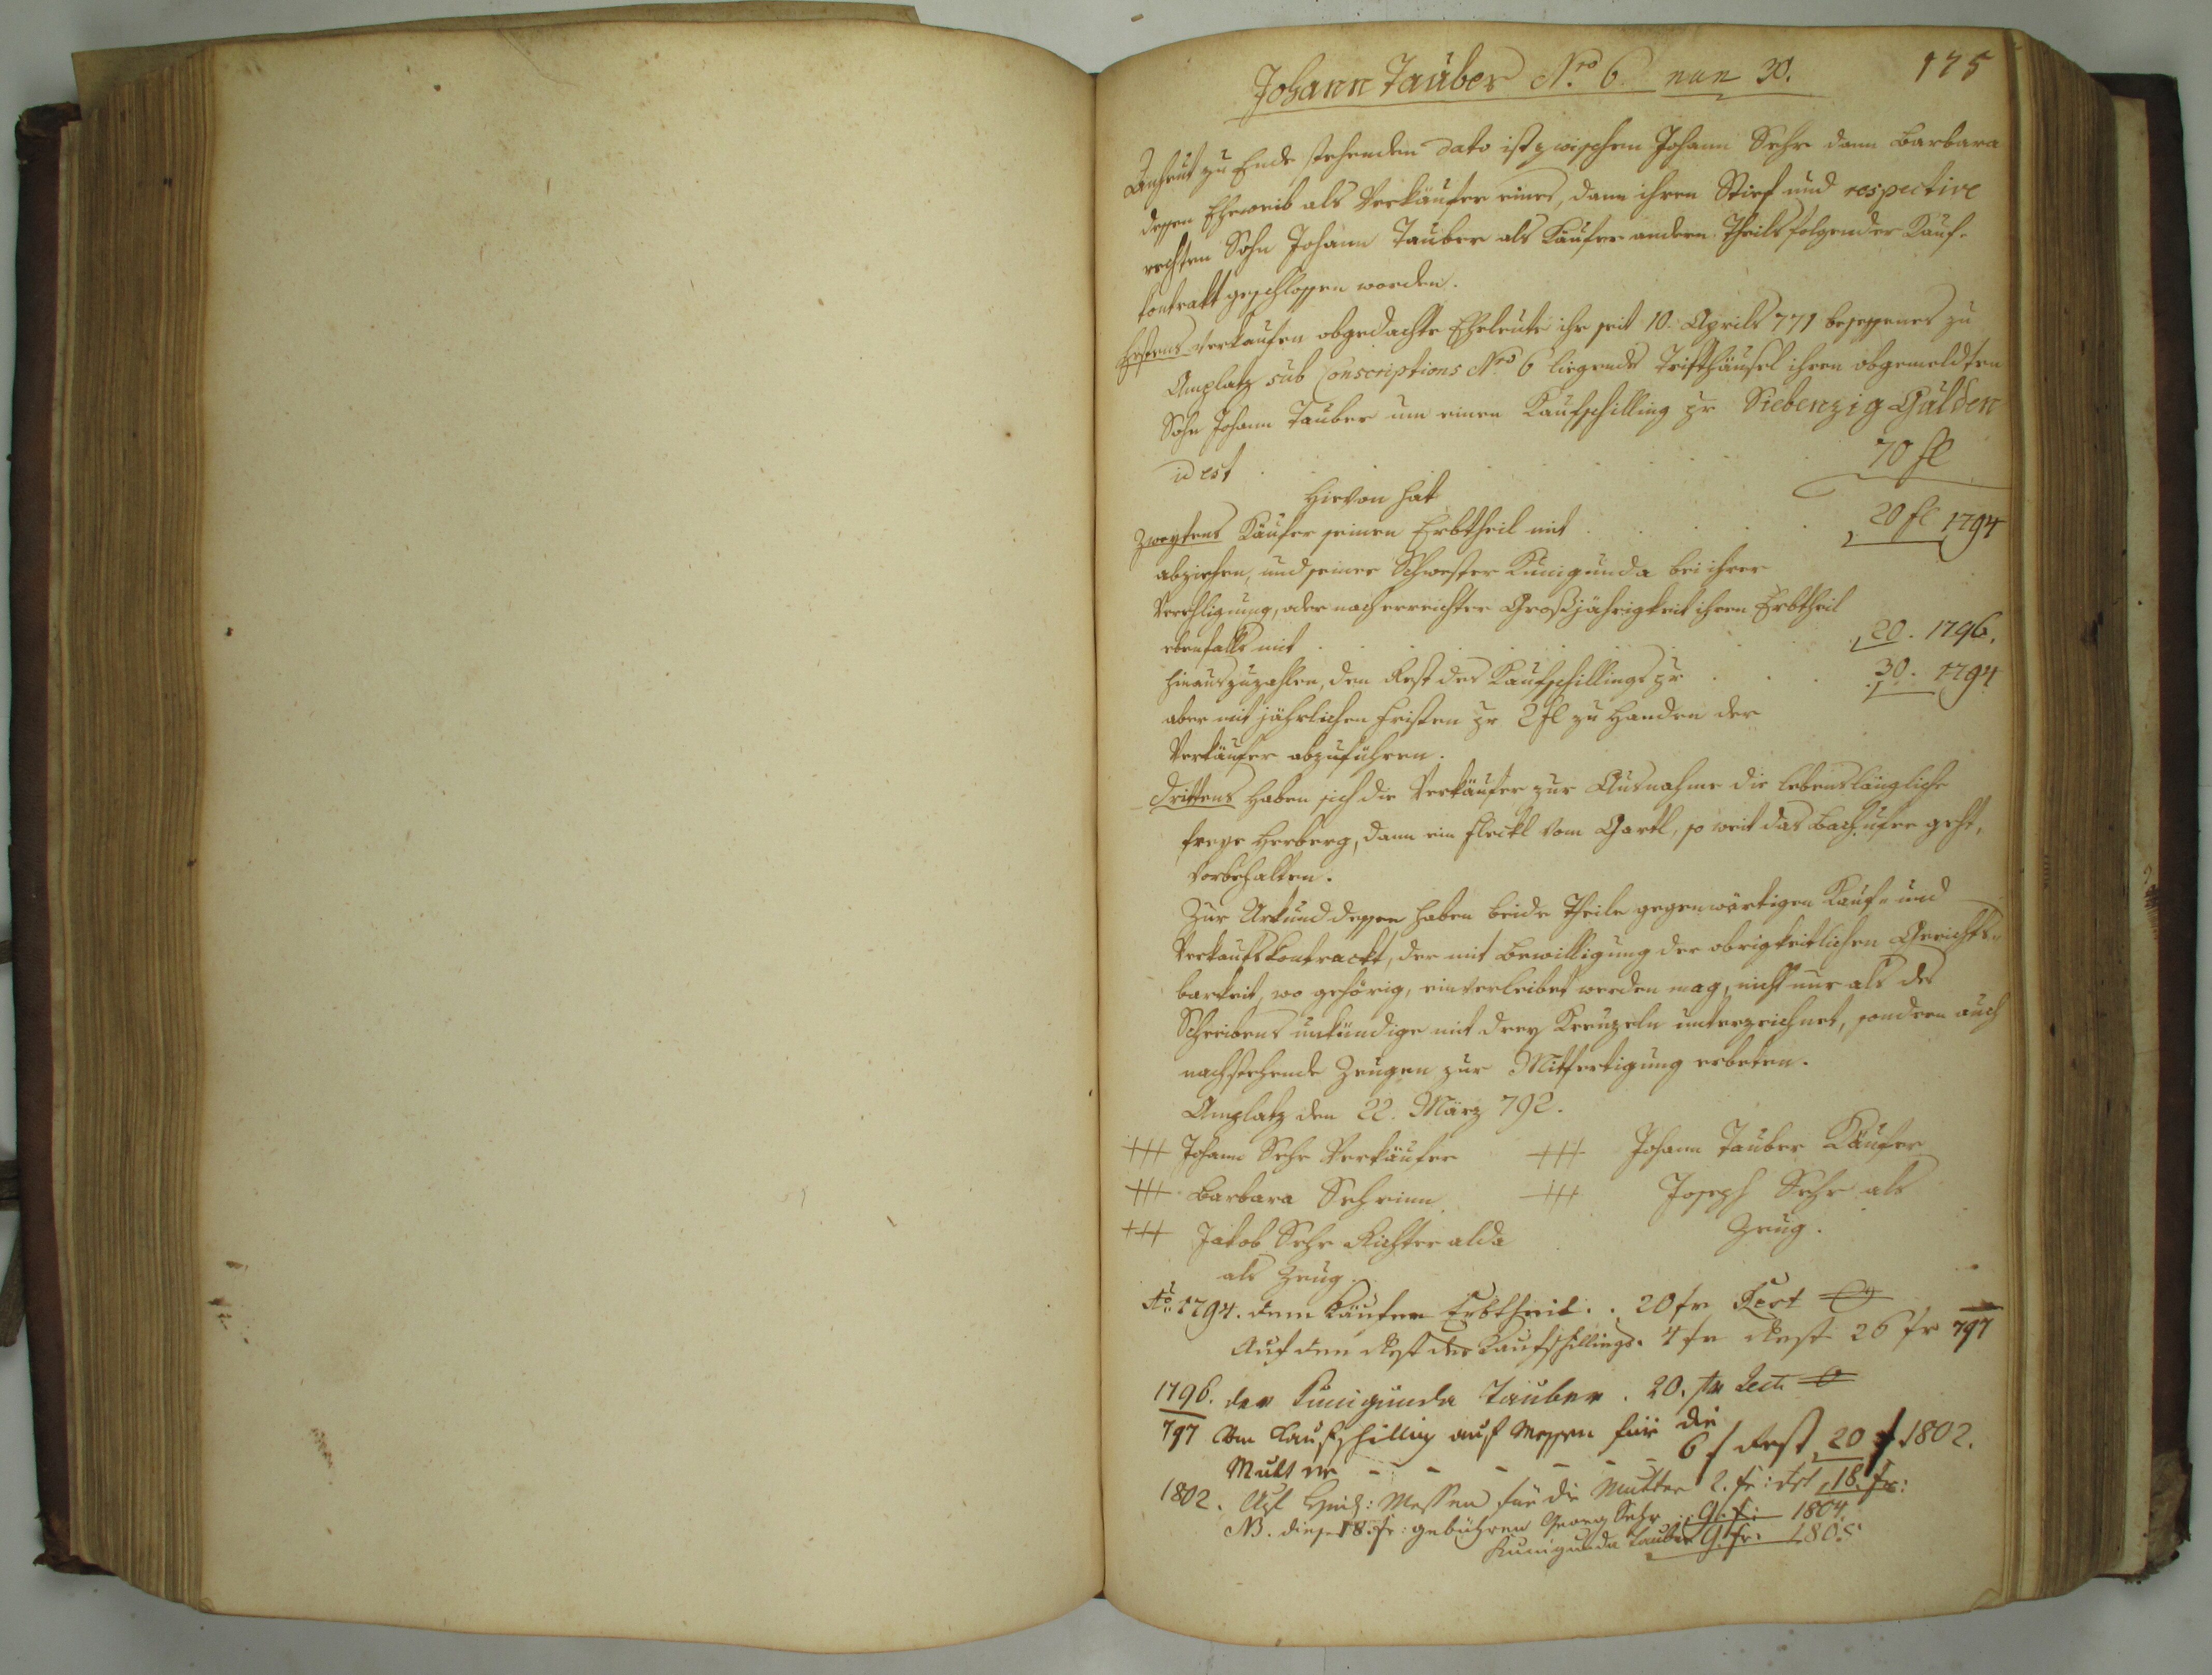 Johann Tauber Nro 6 nun 30.
175
Anheut zu Ende stehenden dato ist zwischen Johann Sehr dann Barbara
dessen Eheweib als Verkäufer eines, dann ihren Stief und respective
rechten Sohn Johann Tauber als Käufer andern Theils folgender Kauf-
kontrakt geschlossen worden.
Erstens verkaufen obgedachte Eheleute ihr seit 10. Aprils 771 besessenes zu
Amplatz sub Conscriptions Nro 6 liegende Trifthäusel ihren obgemeldten
Sohn Johann Tauber um einen Kaufschilling pr Siebenzig Gulden
id est . . . . . 70 fl
Hievon hat
Zweytens Käufer seinen Erbtheil mit . . . . 20 fl 1794
abziehen, und seiner Schwester Kunigunda bei ihrer
Verehligung, oder nach erreichter Großjährigkeit ihren Erbtheil
ebenfalls mit . . . . . . 20. 1796.
hinauszuzahlen, den Rest des Kaufschillings pr . . . 30. 1794
aber mit jährlichen Fristen pr 2 fl zu Handen der
Verkäufer abzuführen.
Drittens haben sich die Verkäufer zur Ausnahme die lebenslängliche
freye Herberg, dann ein Fleckl vom Gartl, so weit das Bachufer geht,
vorbehalten.
Zur Urkund dessen haben beide Theile gegenwärtigen Kauf- und
Verkaufskontrackt, der mit Bewilligung der obrigkeitlichen Gerichts-
barkeit, wo gehörig, einverleibet werden mag, nicht nur als des
Schreibens unkündige mit drey Kreuzeln unterzeichnet, sondern auch
nachstehende Zeugen zur Mitfertigung erbeten.
Amplatz den 22. März 792.
+++ Johann Sehr Verkäufer +++ Johann Tauber Käufer
+++ Barbara Sehrinn +++ Joseph Sehr als
+++ Jakob Sehr Richter alda Zeug.
als Zeug.
Ao 1794. dem Käufer Erbtheil . . 20 fr Rest 0
Auf den Rest des Kaufschillings. 4 fr Rest 26 fr 797
1796. der Kunigunda Tauber . 20. fr Rest 0
797 Vom Kaufschilling auf Messen für die
Mutter - - - - - 6 f Rest 20 f 1802.
1802. Messen für die Mutter 2. fr: Rst 18. fr:
NB. diese 18. fr: gebühren Georg Sehr . 9. fr: 1804.
Kunigunda Tauber 9. fr: 1805.